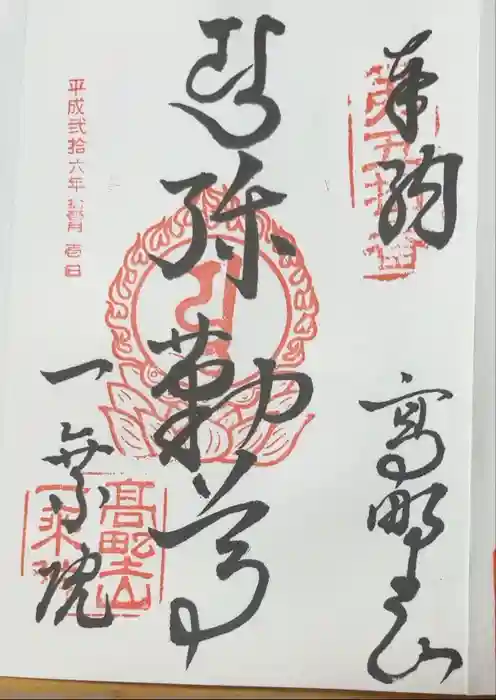 奉納
高野山
弥勒尊
一乗院
平成弐拾六年 壱日
高野山
一乗院